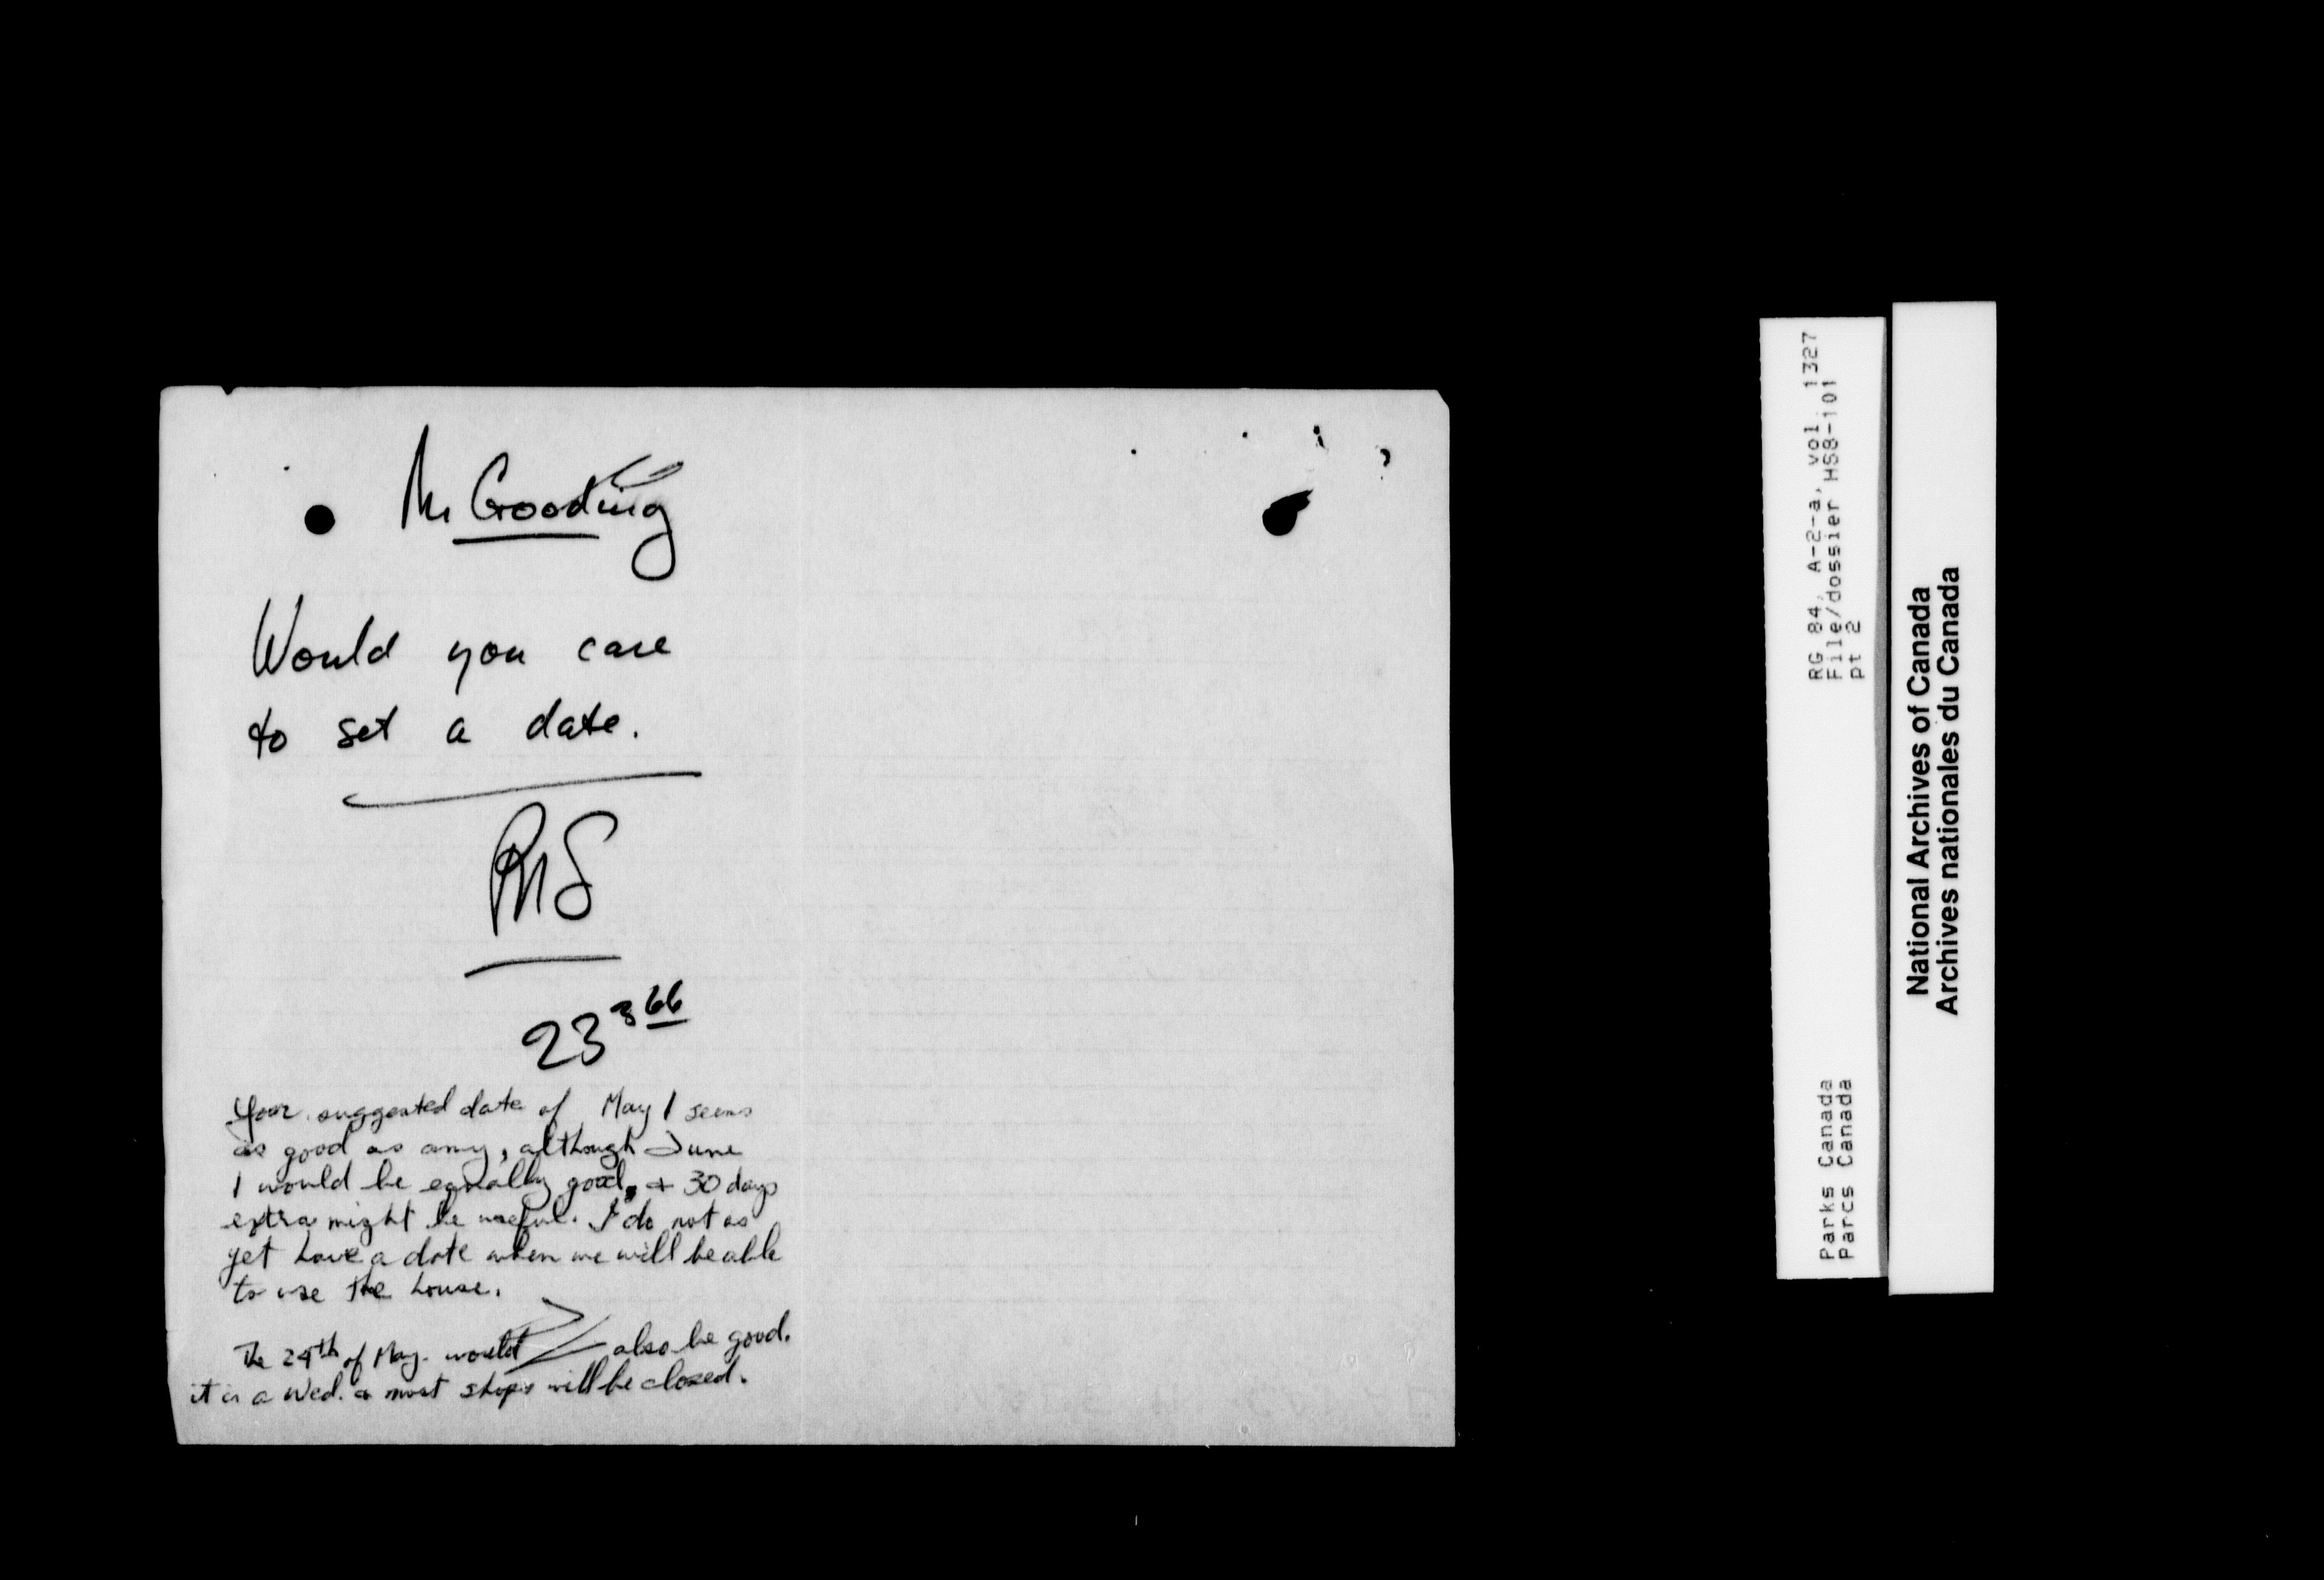 Mr Gooding
Would you care
to set a date.
RMS
23 3 66
Your suggested date of May 1 seems
as good as any, although June
1 would be equally good, + 30 days
extra might be useful. I do not as
yet have a date when we will be able
to use the house.
The 24th of May would also be good.
it is a Wed. & most shops will be closed.
RG 84, A-2-a, vol. 1327
File/dossier HS8-101
pt 2
Parks Canada
Parcs Canada
National Archives of Canada
Archives nationales du Canada